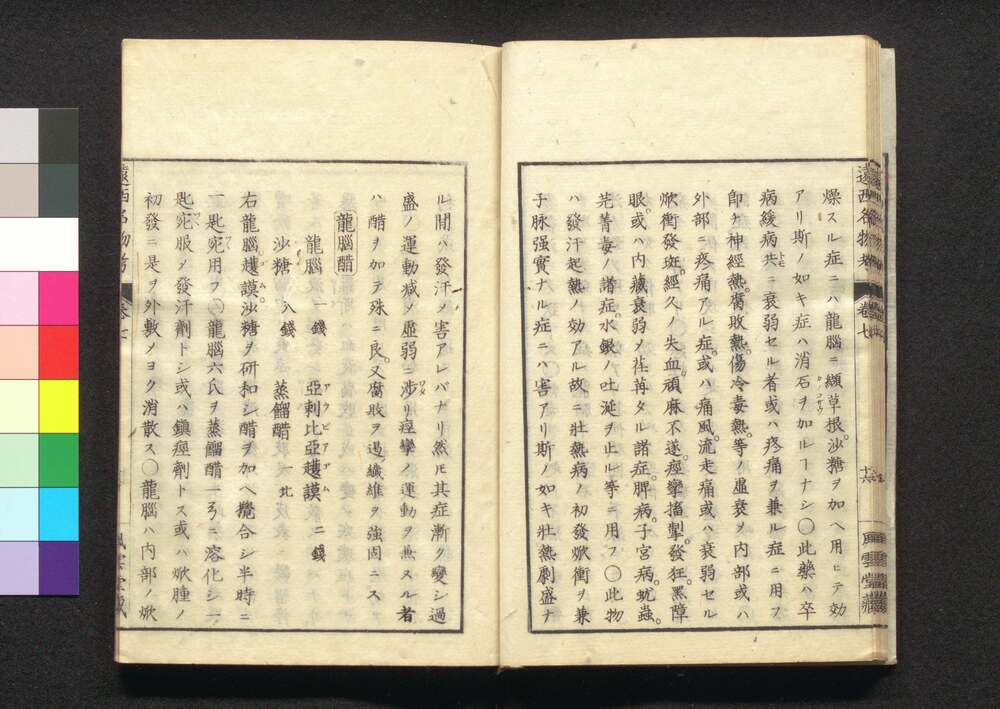 燥スル症ニハ龍腦ニ纈草根。沙糖ヲ加ヘ用ヒテ効
アリ斯ノ如キ症ハ消石ヲ加ルヿナシ〇此藥ハ卒
病緩病共ニ衰弱セル者或ハ疼痛ヲ兼ル症ニ用フ
卽チ神經熱。腐敗熱。傷冷毒熱。等ノ虛衰ヲ内部或ハ
外部ニ疼痛アル症。或ハ痛風。流走痛或ハ衰弱セル
焮衝發斑。經久ノ失血。頑麻不遂。痙攣搐掣。發狂。黑障
眼。或ハ内藏衰弱ノ荏苒タル諸症。脾病。子宮病。蚘蟲。
芫菁毒ノ諸症。水銀ノ吐涎ヲ止ル等ニ用フ〇此物
ハ發汗起熱ノ効アル故ニ壯熱病ノ初發焮衝ヲ兼
子脉强實ナル症ニハ害アリ斯ノ如キ壯熱劇盛ナ
遠西名物考 卷七
ル間ハ發汗〆害アレバナリ然𪜈其症漸ク變シ過
盛ノ運動减〆虛弱ニ涉リ痙攣ノ運動ヲ兼スル者
ハ醋ヲ加テ殊ニ良。又腐敗ヲ遏〆纖維ヲ強固ニス
龍腦醋
龍腦 一錢 亞剌比亞䕶謨 二錢
沙糖 八錢 蒸餾醋 一比
右龍腦䕶謨沙糖ヲ研和シ醋ヲ加ヘ攪合シ半時ニ
二匙宛用フ〇龍腦六氏ヲ蒸餾醋一ヲニ溶化シ一
匙宛服〆發汗劑トシ或ハ鎭痙劑トス或ハ焮腫ノ
初發ニ是ヲ外敷〆ヨク消散ス〇龍腦ハ内部ノ焮